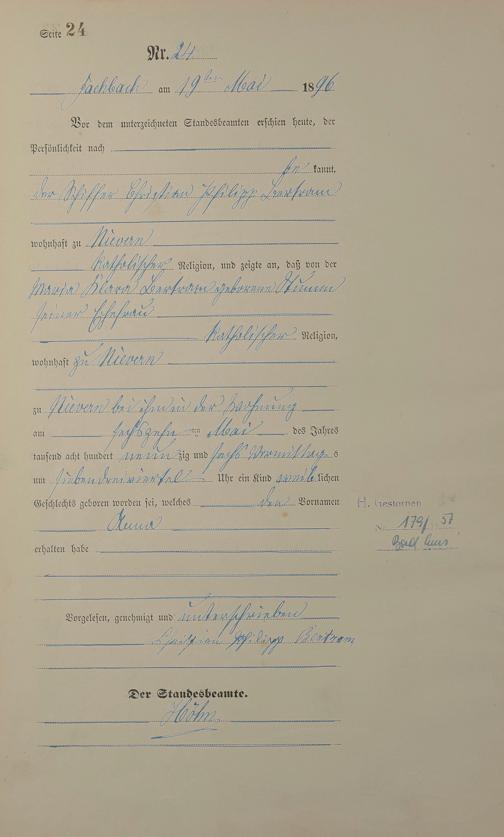 Seite 24
Nr. 24
Fachbach am 19ten Mai 1896
Vor dem unterzeichneten Standesbeamten erschien heute, der
Persönlichkeit nach
be kannt,
der Schiffer Christian Philipp Bertram
wohnhaft zu Nievern
katholischer Religion, und zeigte an, daß von der
Maria Klara Bertram geborene Stumm
seiner Ehefrau
katholischer Religion,
wohnhaft zu Nievern
zu Nievern bei ihm in der Wohnung
am sechszehnten Mai des Jahres
tausend acht hundert neunzig und sechs Vormittags
um siebendreiviertel Uhr ein Kind weiblichen
Geschlechts geboren worden sei, welches den Vornamen
H. Gestorben
Anna
Nr. 179/ 57
erhalten habe
Bad Ems
Vorgelesen, genehmigt und unterschrieben
Christian Philipp Bertram
Der Standesbeamte.
Höhn